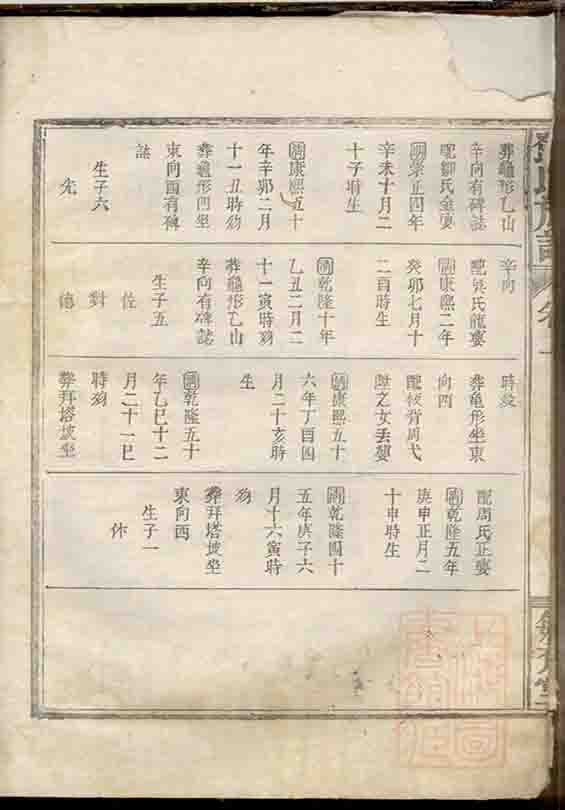 葬龜形乙山
辛向有碑誌
配鄒氏金孁
明崇正四年
辛未十月二
十子時生
清康熙五十
年辛卯二月
十一丑時歿
葬龜形酉坐
東向酉有碑
誌
生子六
先
辛向
配吳氏龍孁
清康熙二年
癸卯七月十
二酉時生
清乾隆十年
乙丑二月二
十一寅時歿
葬龜形乙山
辛向有碑誌
生子五
佐
對
德
時歿
葬龜形坐東
向西
配校背周弋
陞之女丢孁
清康熙五十
六年丁酉四
月二十亥時
生
清乾隆五十
年乙巳十二
月二十一巳
時歿
葬拜塔坡坐
配周氏正孁
清乾隆五年
庚申正月二
十申時生
清乾隆四十
五年庚子六
月十六寅時
歿
葬拜塔坡坐
東向西
生子一
休
氏族譜
卷
一